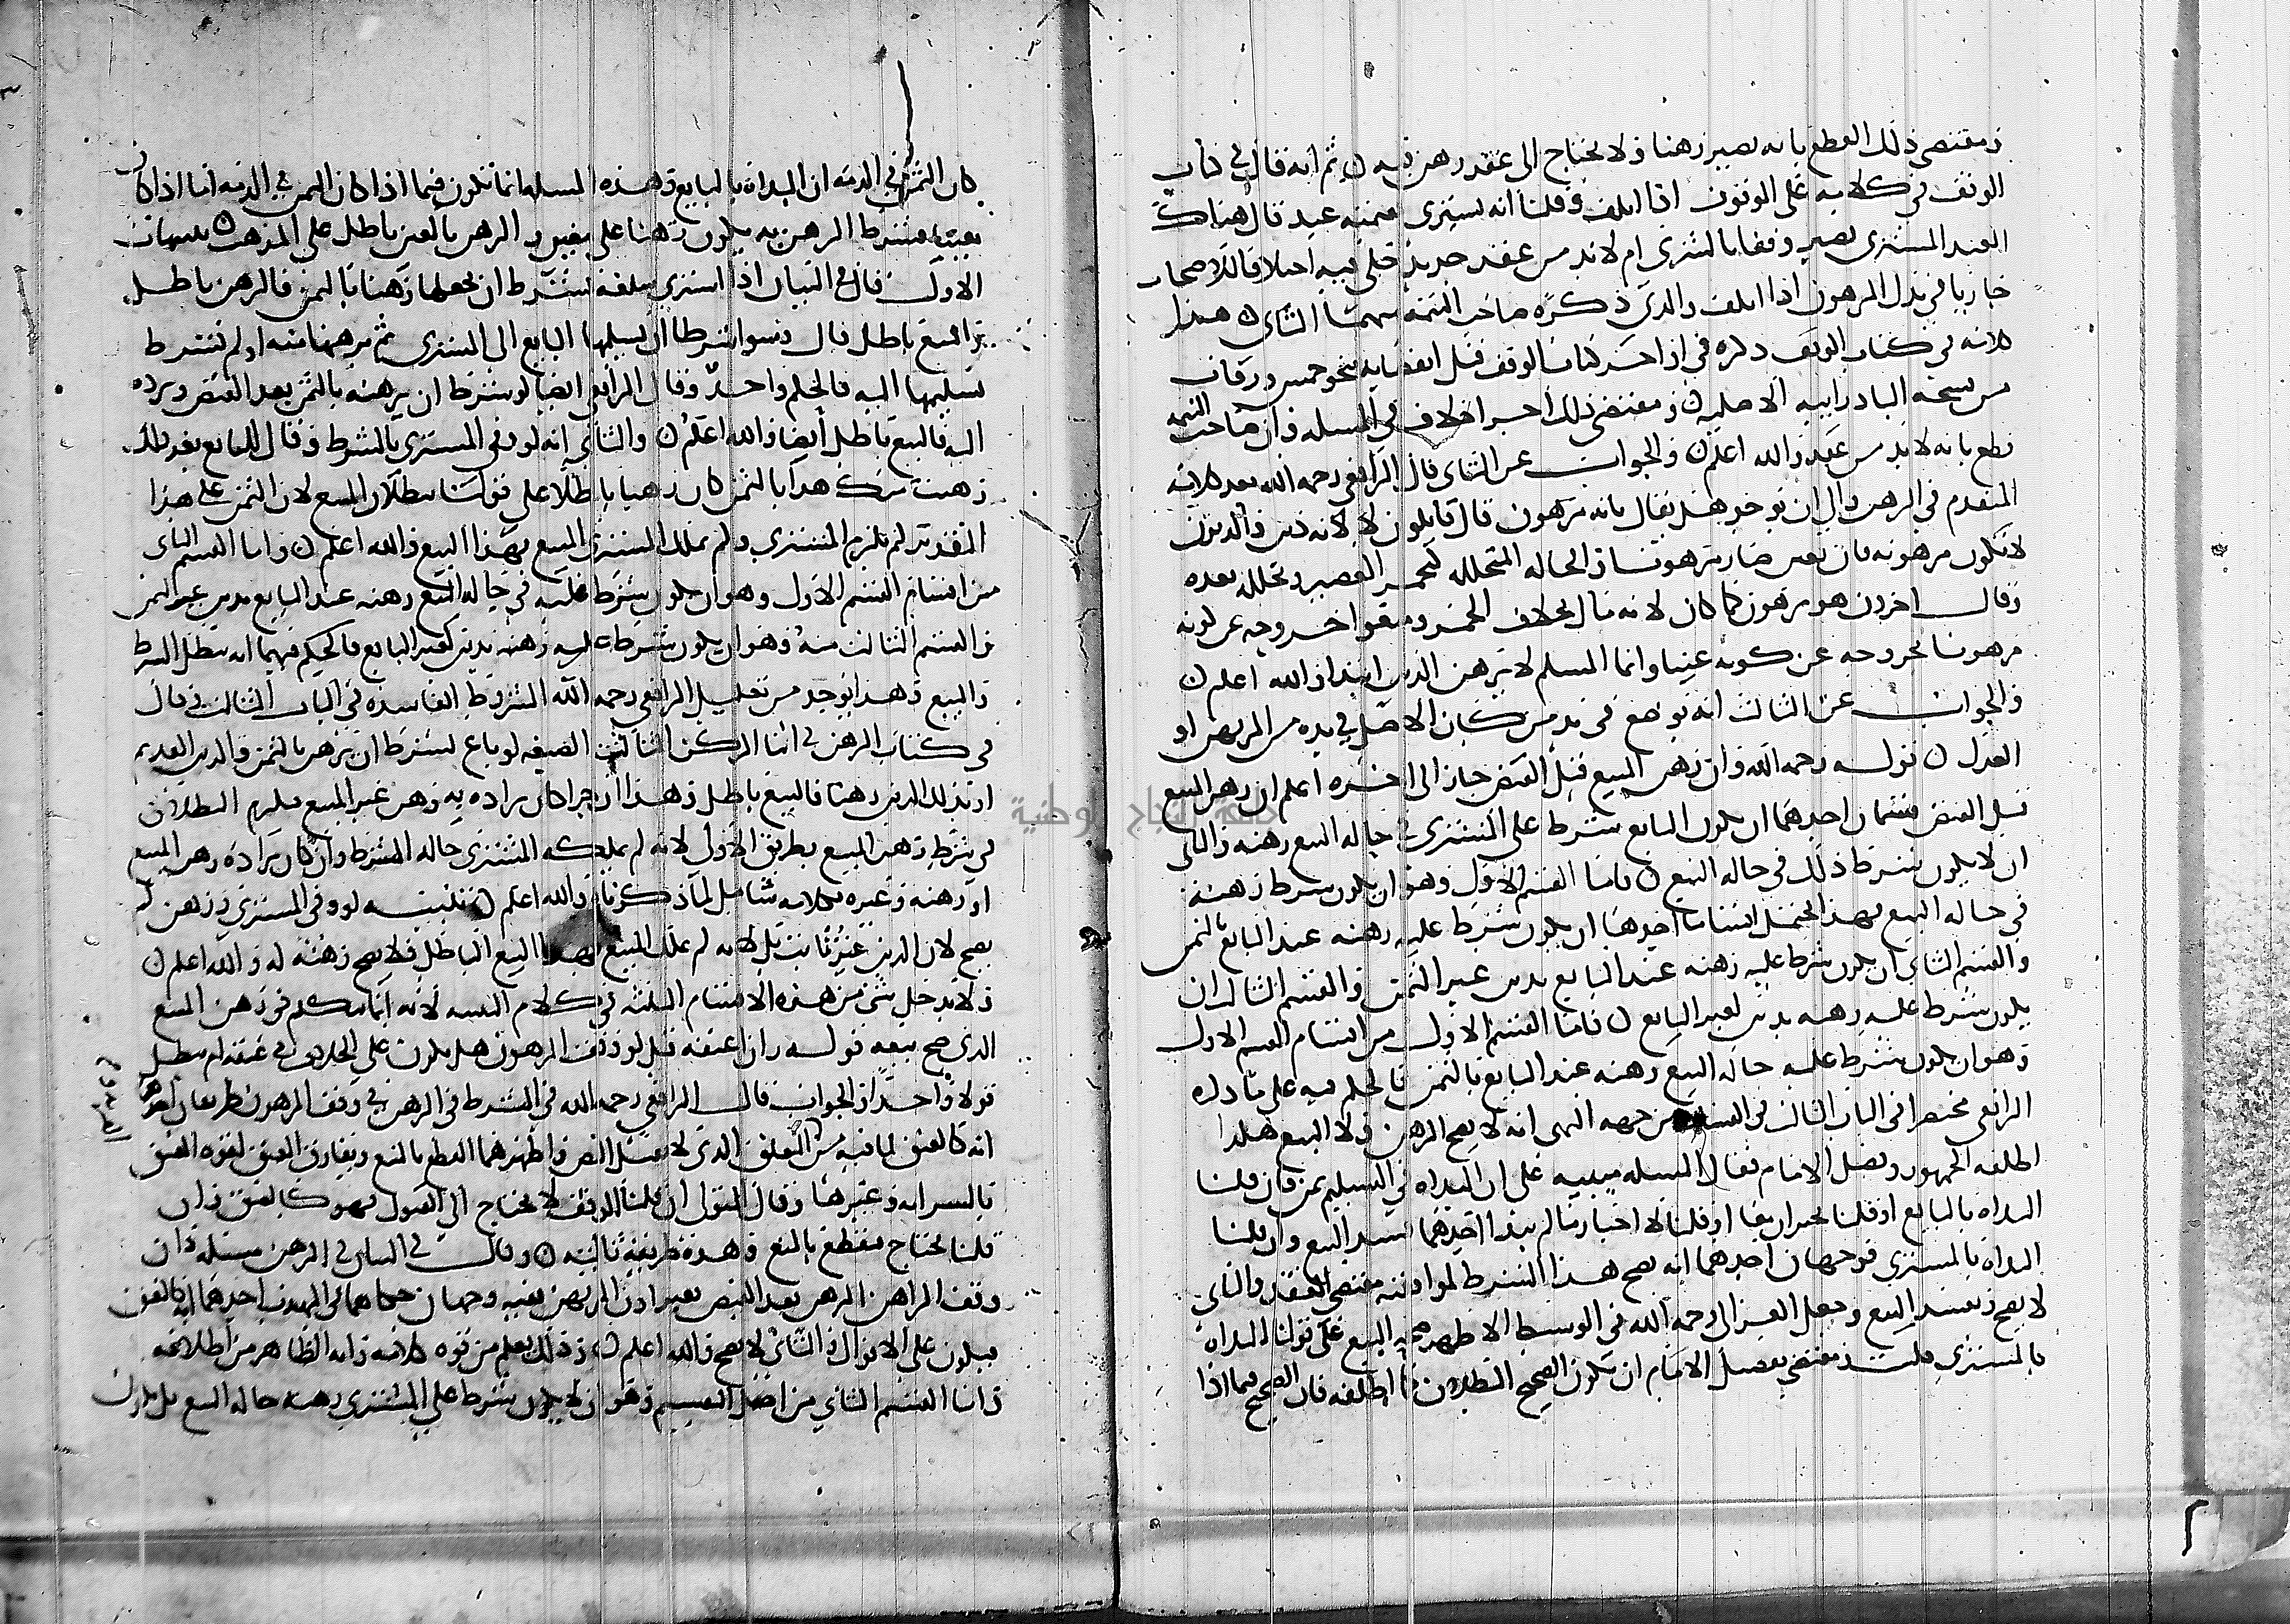 ومقتضى ذلك القطع بانه يصير رهنا ولا يحتاج الى عقد رهن فيه ثم انه قال في كتاب
الوقف في كلامه على الوقوف اذا اتلف وقلنا انه يشتري بقيمته عبد قال هناك
العبد المشترى يصير وقفا بالشرى ام لا بد من عقد جديد حكى فيه اختلافا للاصحاب
جاريا في بدل المرهون اذا اتلف والذي ذكره صاحب التتمه منهما الثاني هذا
كلامه في كتاب الوقف ذكره في اواخر كتاب الوقف قبل انقضايه بنحو خمس ورقات
من نسخة البادرايية الاصلية ومقتضى ذلك اجرا خلاف في المسله وان صاحب التتمه
قطع بانه لا بد من عقد والله اعلم والجواب عن الثاني قال الرافعي رحمه الله بعد كلامه
المتقدم في الرهن والى ان توخذ هل يقال بانه مرهون قال قايلون لا لانه دين والديون
لا تكون مرهونه فان تعين صار مرهونا والحاله المتخلله كتخمر العصير وتخلله بعده
وقال اخرون هو مرهون كما كان لانه مال بخلاف الخمر ومنعوا خروجه عن كونه
مرهونا بخروجه عن كونه عينا وانما المسلم لا يرهن الدين ابتدا والله اعلم
والجواب عن الثالث انه يوضع في يد من كان الاصل في يده من المرتهن او
العدل قوله رحمه الله وان رهن المبيع قبل القبض جاز الى اخره اعلم ان رهن المبيع
قبل القبض قسمان احدهما ان يكون البايع شرط على المشتري في حاله البيع رهنه والثاني
ان لا يكون شرط ذلك في حاله البيع فاما القسم الاول وهو ان يكون شرط رهنه
في حاله البيع فهذا يحتمل اقساما احدها ان يكون شرط عليه رهنه عند البايع بالثمن
والقسم الثاني ان يكون شرط عليه رهنه عند البايع بدين غير الثمن والقسم الثالث ان
يكون شرط عليه رهنه بدين لغير البايع فاما القسم الاول من اقسام القسم الاول
وهو ان يكون شرط عليه حاله البيع رهنه عند البايع بالثمن فالحكم فيه على ما ذكره
الرافعي مختصرا في الباب الثالث في من جهه النهي انه لا يصح الرهن ولا البيع هكذا
اطلقه الجمهور وفصل الامام فقال المسله مبنيه على ان البداه في التسليم بمن فان قلنا
البداه بالبايع او قلنا يجبران معا او قلنا لا اجبار ما لم يبدا احدهما فسد البيع وان قلنا
البداه بالمشتري فوجهان احدهما انه يصح هذا الشرط لموافقته مقتضى العقد والثاني
لا يصح ويفسد البيع وجعل الغزالي رحمه الله في الوسيط الاظهر صحه البيع على قولنا البداه
بالمشتري قلت ومقتضى تفصيل الامام ان يكون الصحيح البطلان كما اطلقه فان الصحيح فيما اذا
كان الثمن في الذمه ان البداه بالبايع وهذه المسله انما تكون فيما اذا كان الثمن في الذمه اما اذا كان
معينا فشرط الرهن به يكون رهنا على معين والرهن بالعين باطل على المذهب تنبيهات
الاول قال في البيان اذا اشترى سلعه بشرط ان يجعلها رهنا بالثمن فالرهن باطل
والبيع باطل قال وسوا شرطا ان يسلمها البايع الى المشتري ثم يرهنها منه او لم يشترط
تسليمها اليه فالحكم واحد وقال الرافعي ايضا لو شرط ان يرهنه بالثمن بعد القبض ويرده
اليه فالبيع باطل ايضا والله اعلم والثاني انه لو وفى المشتري بالشرط وقال للبايع بعد ذلك
رهنت منك هذا بالثمن كان رهنا باطلا على قولنا ببطلان البيع لان الثمن على هذا
التقدير لم يلزم المشتري ولم يملك المشتري المبيع بهذا البيع والله اعلم واما القسم الثاني
من اقسام القسم الاول وهو ان يكون شرط عليه في حاله البيع رهنه عند البايع بدين غير الثمن
والقسم الثالث منه وهو ان يكون شرط عليه رهنه بدين لغير البايع فالحكم فيهما انه يبطل الشرط
والبيع وهذا يوجد من تعليل الرافعي رحمه الله الشروط الفاسده في الباب الثالث وقال
في كتاب الرهن في اثنا الركن الثالث الصيغه لو باع بشرط ان يرهن بالثمن والدين القديم
او بذلك الدين رهنا فالبيع باطل وهذا ان كان مراده به رهن غير المبيع فيلزم البطلان
في شرط رهن المبيع بطريق الاولى لانه لم يملكه المشتري حاله الشرط وان كان مراده رهن المبيع
او رهنه وغيره فكلامه شامل لما ذكرناه والله اعلم تنبيه لو وفى المشتري ورهن لم
يصح لان الدين غير ثابت بل لانه لم يملك المبيع بهذا البيع الباطل فلا يصح رهنه له والله اعلم
ولا يدخل شي من هذه الاقسام الثلثه في كلام التنبيه لانه انما يتكلم في رهن المبيع
الذي صح بيعه قوله وان اعتقه قيل لو وقف المرهون هل يكون على الخلاف في عتقه ام يبطل
قولا واحدا والجواب قال الرافعي رحمه الله في الشرط في الرهن في وقف المرهون طريقان احدهما
انه كالعتق لما فيه من التعلق الذي لا يقبل النقض واظهرهما القطع بالمنع ويفارق العتق لقوه العتق
بالسرايه وغيرها وقال المتولي ان قلنا الوقف لا يحتاج الى القبول فهو كالعتق وان
قلنا يحتاج فيقطع بالمنع وهذه طريقة ثالثه وقال في البيان في الرهن مسله وان
وقف الراهن الرهن بعد القبض بغير اذن المرتهن ففيه وجهان حكاهما في المهذب احدهما انه كالعتق
فيكون على الاقوال والثاني لا يصح والله اعلم وذلك يعلم من قوه كلامه وانه الظاهر من اطلاقه
واما القسم الثاني من اصل التقسيم وهو ان لا يكون شرط على المشتري رهنه حاله البيع بل يكون